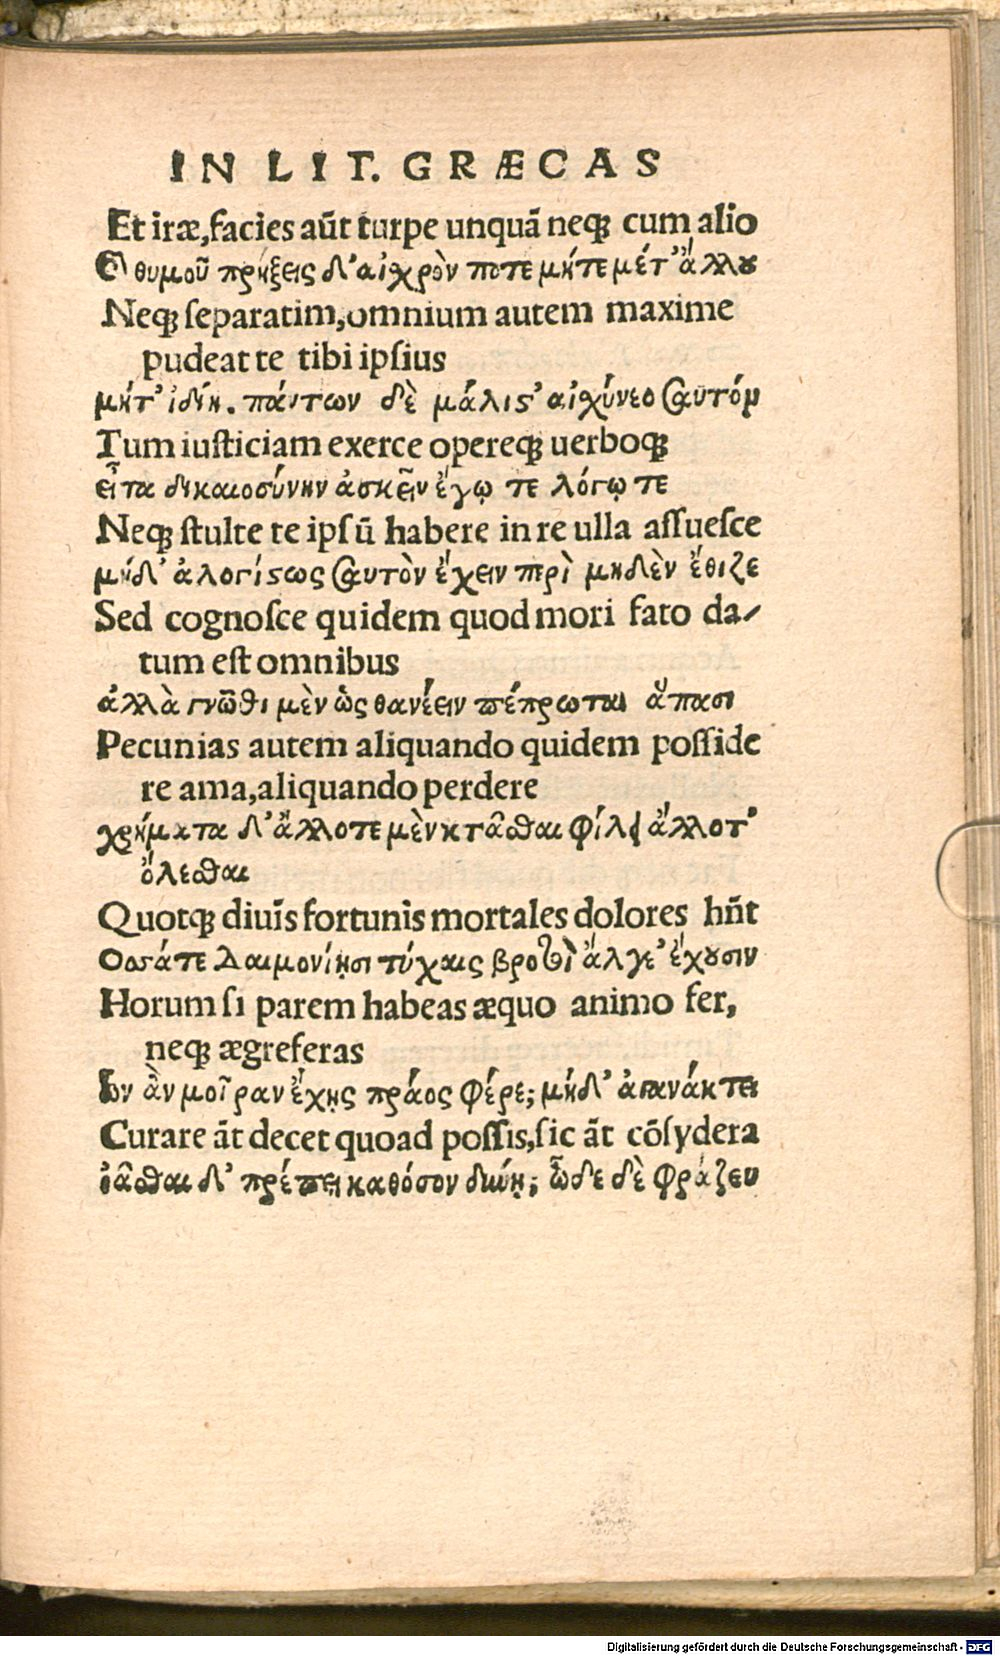 IN LIT. GRÆCAS
Et iræ,facies aūt turpe unquā neqꝫ cum alio
Καὶ θυμοῦ πρήξεις δ'αἰχρὸν ποτε μήτε μέτ' ἄλλου
Neqꝫ separatim,omnium autem maxime
pudeat te tibi ipsius
μήτ' ἰδίη. πάντων δὲ μάλις' αἰχύνεο σαυτόν
Tum iusticiam exerce opereqꝫ uerboqꝫ
εἶτα δικαιοσύνην ἀσκεῖν ἔγῳ τε λόγῳ τε
Neqꝫ stulte te ipsū habere in re ulla assuesce
μήδ' ἀλογίςως σαυτὸν ἔχειν περὶ μηδὲν ἔθιζε
Sed cognosce quidem quod mori fato da/
tum est omnibus
ἀλλὰ γνῶθι μὲν ὡς θανέειν πέπρωται ἅπασι
Pecunias autem aliquando quidem posside
re ama,aliquando perdere
χρήματα δ'ἄλλοτε μὲν κτᾶσθαι φίλει ἄλλοτ'
ὀλεσθαι
Quotqꝫ diuīs fortunis mortales dolores hn̄t
Οσάτε Δαιμονίῃσι τύχαις βροτοὶ ἄλγε' ἔχουσιν
Horum si parem habeas æquo animo fer,
neqꝫ ægreferas
ὧν ἂν μοῖραν ἔχῃς πράος φέρε; μήδ' ἀγανάκτει
Curare āt decet quoad possis,sic āt cōsydera
ἰᾶσθαι δ' πρέπει καθόσον δύνῃ; ὧδε δὲ φράζευ
Digitalisierung gefördert durch die Deutsche Forschungsgemeinschaft - DFG